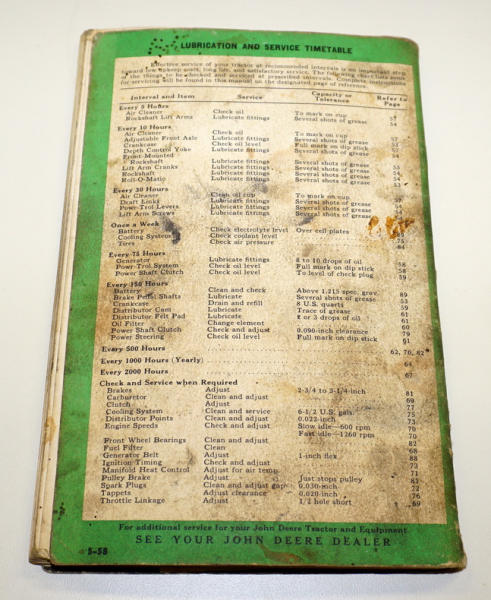 LUBRICATION AND SERVICE TIMETABLE
Effective service of your tractor at recommended intervals is an important step
toward low upkeep cost, long life, and satisfactory service. The following chart lists most
of the things to be checked and serviced at prescribed intervals. Complete instructions
for servicing will be found in this manual on the designated page of reference.
Interval and Item Service Capacity or Tolerance Refer to Page
Every 5 Hours
Air Cleaner Check oil To mark on cup
Rockshaft Lift Arms Lubricate fittings Several shots of grease 54
Every 10 Hours
Air Cleaner Check oil To mark on cup
Adjustable Front Axle Lubricate fittings Several shots of grease 57
Crankcase Check oil level Full mark on dip stick 53
Depth Control Yoke Lubricate fittings Several shots of grease 54
Front-Mounted
Rockshaft Lubricate fittings Several shots of grease
Lift Arm Cranks Lubricate fittings Several shots of grease
Rockshaft Lubricate fittings Several shots of grease 54
Roll-O-Matic Lubricate fittings Several shots of grease 53
Every 30 Hours
Air Cleaner Clean oil cup To mark on cup
Draft Links Lubricate fittings Several shots of grease
Powr-Trol Levers Lubricate fittings Several shots of grease
Lift Arm Screws Lubricate fittings Several shots of grease
Once a Week
Battery Check electrolyte level Over cell plates
Cooling System Check coolant level 75
Tires Check air pressure 84
Every 75 Hours
Generator Lubricate fittings 8 to 10 drops of oil 58
Powr-Trol System Check oil level Full mark on dip stick 58
Power Shaft Clutch Check oil level To level of check plug 59
Every 150 Hours
Battery Clean and check Above 1.215 spec. grav. 89
Brake Pedal Shafts Lubricate Several shots of grease 53
Crankcase Drain and refill 8 U.S. quarts 59
Distributor Cam Lubricate Trace of grease 61
Distributor Felt Pad Lubricate 2 or 3 drops of oil 61
Oil Filter Change element 60
Power Shaft Clutch Check and adjust 0.090-inch clearance 79
Power Steering Check oil level Full mark on dip stick 61
Every 500 Hours 62, 70, 82
Every 1000 Hours (Yearly) 64
Every 2000 Hours 67
Check and Service when Required
Brakes Adjust 2-3/4 to 3-1/4-inch 81
Carburetor Clean and adjust 69
Clutch Adjust 77
Cooling System Clean and service 6-1/2 U.S. gals. 75
Distributor Points Clean and adjust 0.022-inch 73
Engine Speeds Check and adjust Slow idle—600 rpm 70
Fast idle—1260 rpm 70
Front Wheel Bearings Clean and adjust 82
Fuel Filter Clean 68
Generator Belt Adjust 1-inch flex 88
Ignition Timing Check and adjust 72
Manifold Heat Control Adjust for air temp. 71
Pulley Brake Adjust Just stops pulley 82
Spark Plugs Clean and adjust gap 0.030-inch 72
Tappets Adjust clearance 0.020-inch 76
Throttle Linkage Adjust 1/2 hole short 69
For additional service for your John Deere Tractor and Equipment
SEE YOUR JOHN DEERE DEALER
5-58